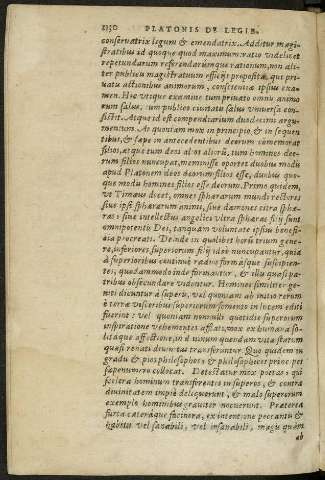 1130 PLATONIS DE LEGIB.
conservatrix legum & emendatrix. Additur magi-
stratibus id quoque quod maximum: ratio videlicet
repetundarum referendarúmque rationum, non ali-
ter publicu magistratuum officijs proposita, quàm pri-
vatu actionibus animorum, conscientia ipsius exa-
men. Hic utique examine tum privato omni animo
rum salus, tum publico civitatu salus universa con-
sistit. Atque id est compendiarium duodecimi argu-
mentum. At quoniam mox in principio, & in sequen
tibus, & sæpe in antecedentibus deorum commemorat
filios, atque tum deos alios aliorũ, tum homines deo-
rum filios nuncupat, meminisse oportet duobus modis
apud Platonem deos deorum filios esse, duobus quo-
que modis homines filios esse deorum. Primo quidem,
ut Timæus docet, omnes sphærarum mundi rectores
sive ipsi sphærarum animi, sive dæmones citra sphæ-
ras: sive intellectus angelici ultra sphæras filij sunt
omnipotentis Dei, tanquam voluntate ipsius benefi-
cia procreati. Deinde in quolibet horũ trium gene-
re, inferiores, superiorum filij ideo nuncupantur, quia
à superioribus continuè radios formásque suscipien-
tes, quodammodo inde formantur, & illis quasi pa-
tribus obsecundare videntur. Homines similiter ge-
niti dicuntur à superis, vel quoniam ab initio rerum
è terra visceribus superiorum semente in lucem editi
fuerint: vel quoniam nonnulli quotidie superorum
inspiratione vehementes afflati, mox ex humana so-
lita que affectione, in divinum quendam vitæ statum
quasi renati divinitus transferuntur. Quo quidem in
gradu & pios philosophos & philosophicos princi-
pes sæpenumero collocat. Detestatur mox poëtas: qui
scelera hominum transferentes in superos, & contra
divinitatem impiè deliquerunt, & malo superorum
exemplo hominibus graviter nocuerunt. Præterea
furta cæteráque facinora, ex intentione peccantis &
habitu vel sanabili, vel insanabili, magis quàm
ab